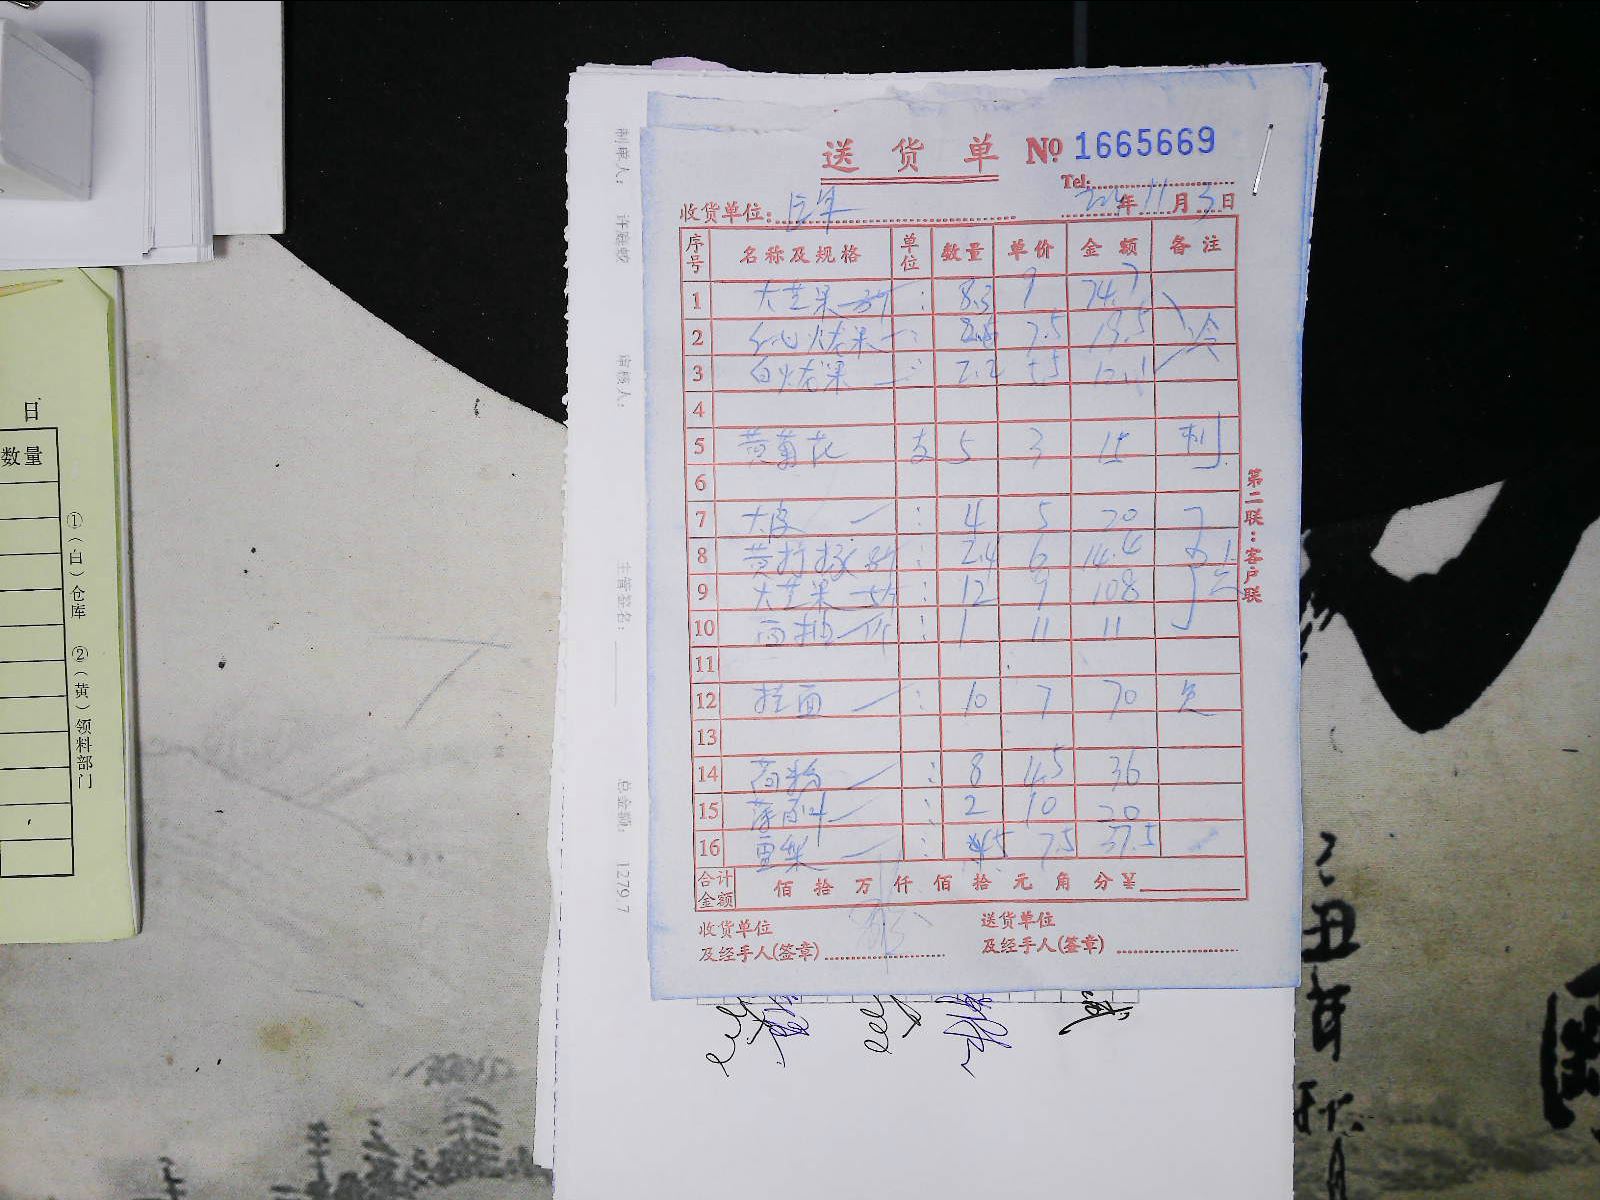 送货单 № 1665669
Tel:
收货单位: 年 11月 3日
序号 名称及规格 单位 数量 单价 金额 备注
1 大芒果 : 8.3 9 74.7
2 红心火龙果 : 2.6 7.5 19.5 冷
3 白火龙果 : 2.2 5.5 12.1
4
5 黄菊花 支 5 3 15 刺
6
7 大皮 : 4 5 20
8 黄柠檬 : 2.4 6 14.4
9 大芒果 : 12 9 108
10 西柚 : 1 11 11
11
12 拉面 : 10 7 70
13
14 : 8 4.5 36
15 薄荷叶 : 2 10 20
16 雪梨 : 5 7.5 37.5
合计金额 佰 拾 万 仟 佰 拾 元 角 分 ¥
收货单位
及经手人(签章)
送货单位
及经手人(签章)
第二联:客户联
制单人:
审核人:
主管签名:
总金额: 1279.7
日
数量
①(白)仓库 ②(黄)领料部门